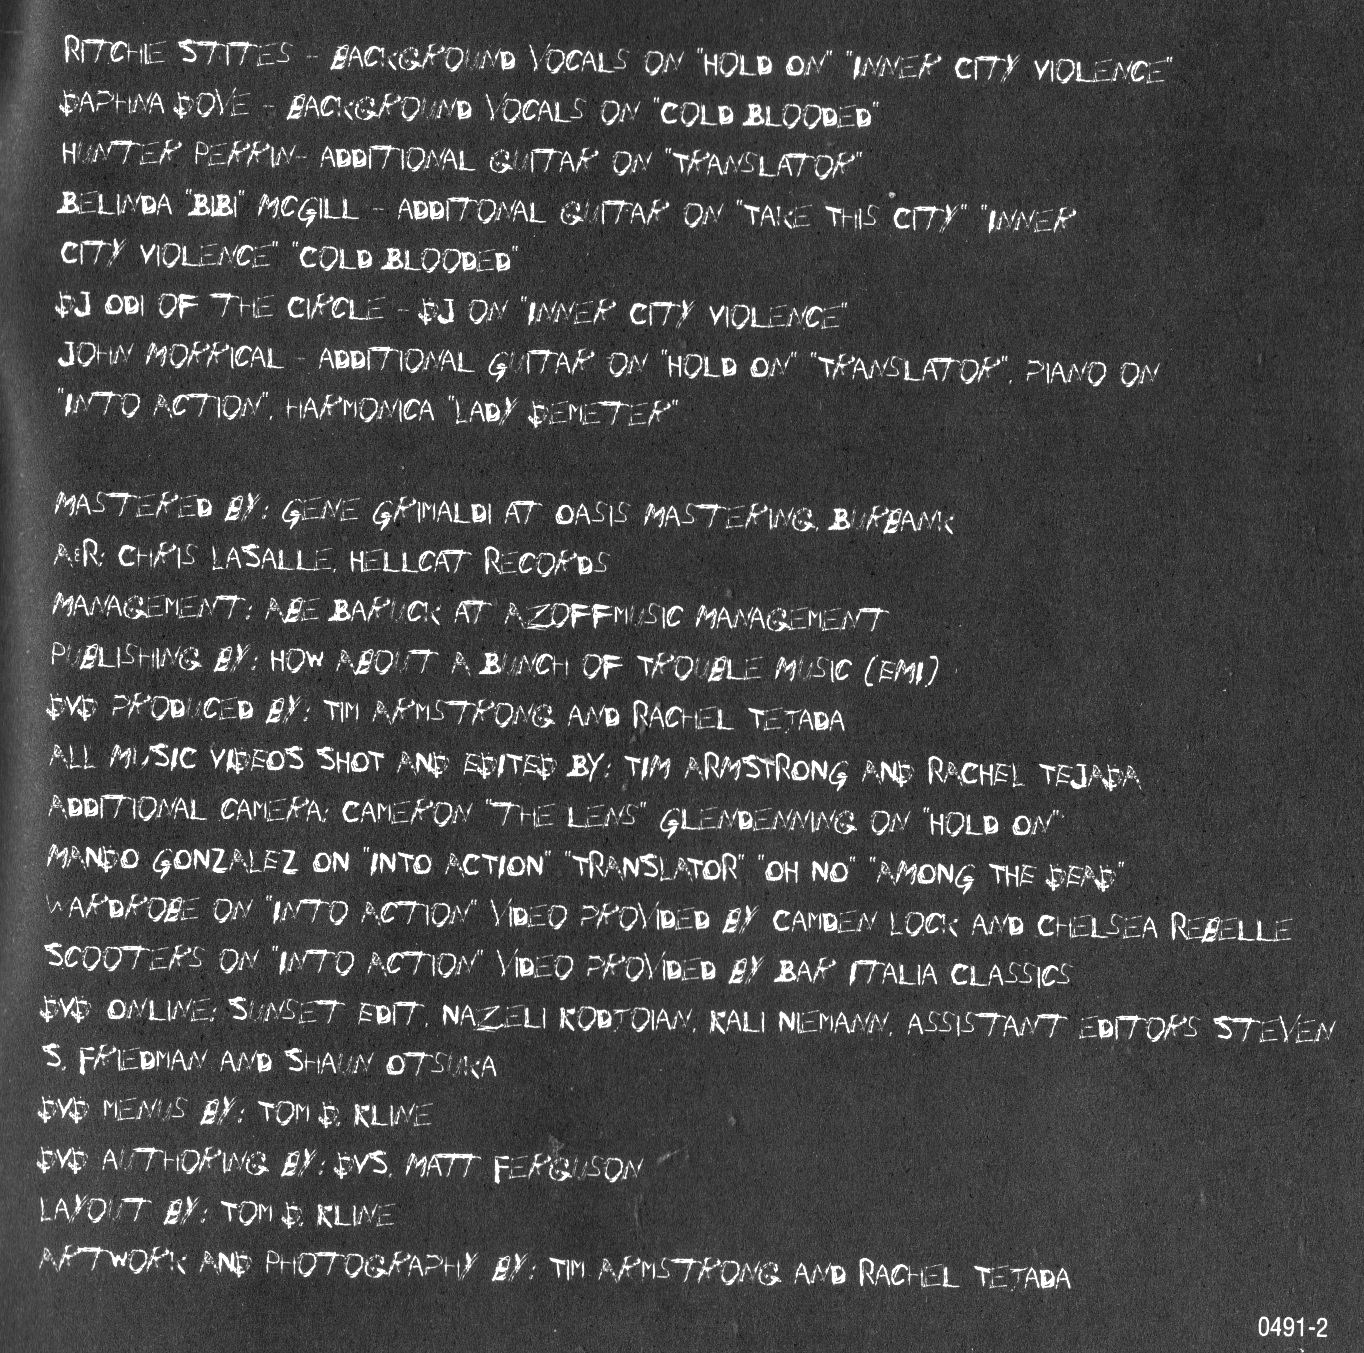 RITCHIE STITES - BACKGROUND VOCALS ON "HOLD ON" "INNER CITY VIOLENCE"
DAPHNA DOVE - BACKGROUND VOCALS ON "COLD BLOODED"
HUNTER PERRIN- ADDITIONAL GUITAR ON "TRANSLATOR"
BELINDA "BIBI" MCGILL - ADDITONAL GUITAR ON "TAKE THIS CITY" "INNER
CITY VIOLENCE" "COLD BLOODED"
DJ ODI OF THE CIRCLE - DJ ON "INNER CITY VIOLENCE"
JOHN MORRICAL - ADDITIONAL GUITAR ON "HOLD ON" "TRANSLATOR", PIANO ON
"INTO ACTION", HARMONICA "LADY DEMETER"
MASTERED BY: GENE GRIMALDI AT OASIS MASTERING, BURBANK
A&R: CHRIS LASALLE, HELLCAT RECORDS
MANAGEMENT: ABE BARUCK AT AZOFFMUSIC MANAGEMENT
PUBLISHING BY: HOW ABOUT A BUNCH OF TROUBLE MUSIC (EMI)
DVD PRODUCED BY: TIM ARMSTRONG AND RACHEL TEJADA
ALL MUSIC VIDEOS SHOT AND EDITED BY: TIM ARMSTRONG AND RACHEL TEJADA
ADDITIONAL CAMERA: CAMERON "THE LENS" GLENDENNING ON "HOLD ON"
MANDO GONZALEZ ON "INTO ACTION" "TRANSLATOR" "OH NO" "AMONG THE DEAD"
WARDROBE ON "INTO ACTION" VIDEO PROVIDED BY CAMDEN LOCK AND CHELSEA REBELLE
SCOOTERS ON "INTO ACTION" VIDEO PROVIDED BY BAR ITALIA CLASSICS
DVD ONLINE: SUNSET EDIT, NAZELI KODJOIAN, KALI NIEMANN, ASSISTANT EDITORS STEVEN
S. FRIEDMAN AND SHAUN OTSUKA
DVD MENUS BY: TOM D. KLINE
DVD AUTHORING BY: DVS, MATT FERGUSON
LAYOUT BY: TOM D. KLINE
ARTWORK AND PHOTOGRAPHY BY: TIM ARMSTRONG AND RACHEL TEJADA
0491-2